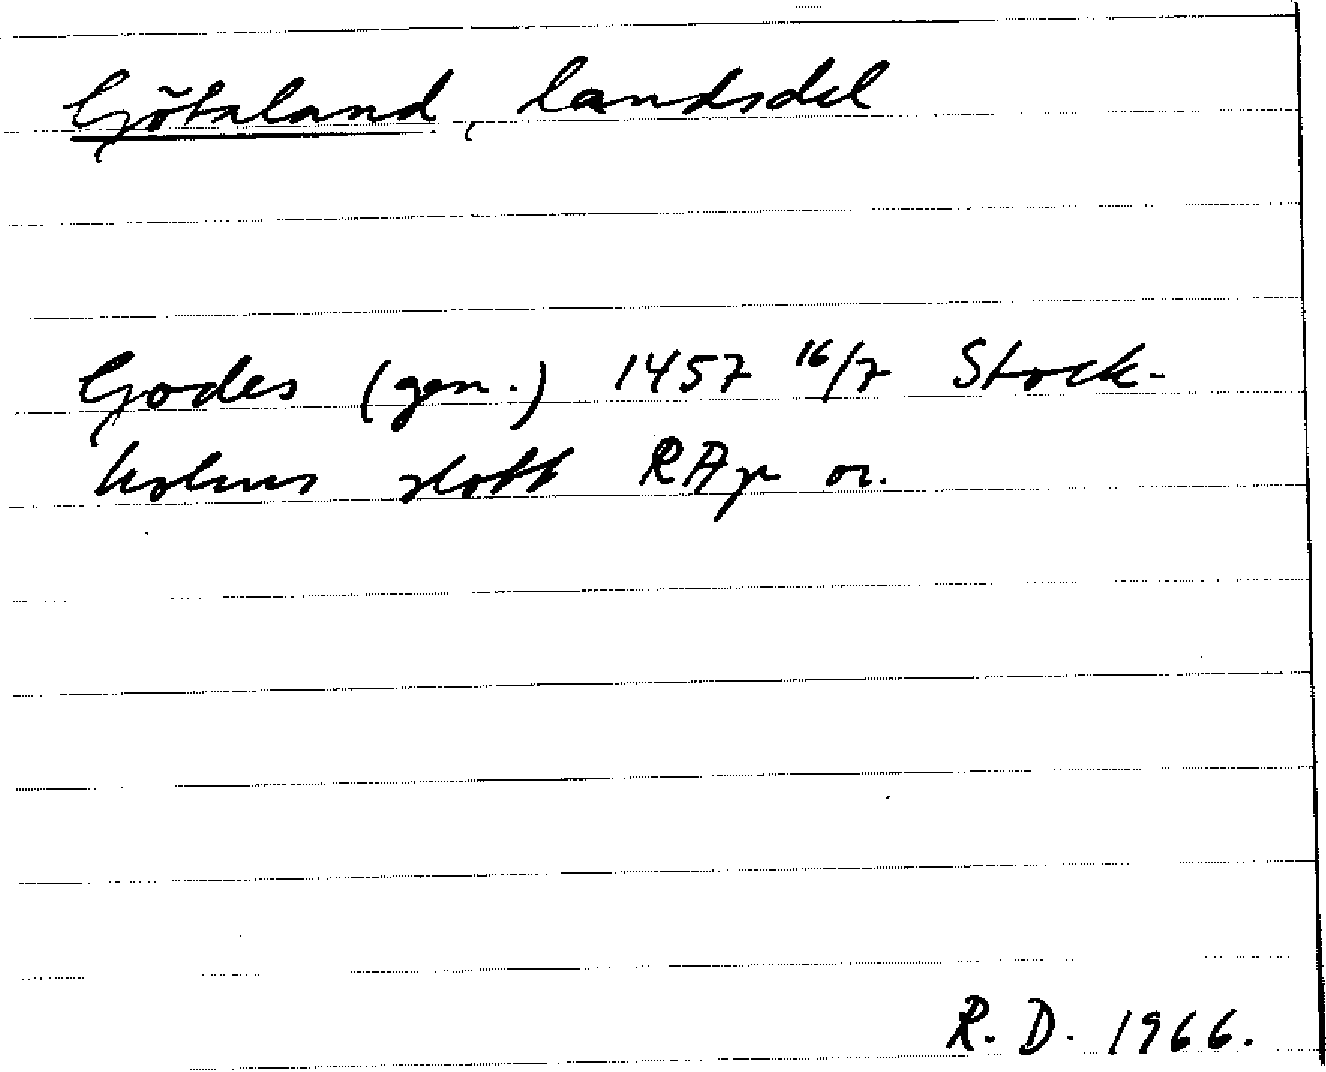 Götaland, landsdel
Godes (gen.) 1457 16/7 Stock-
holms slott RAp or.
R. D. 1966.